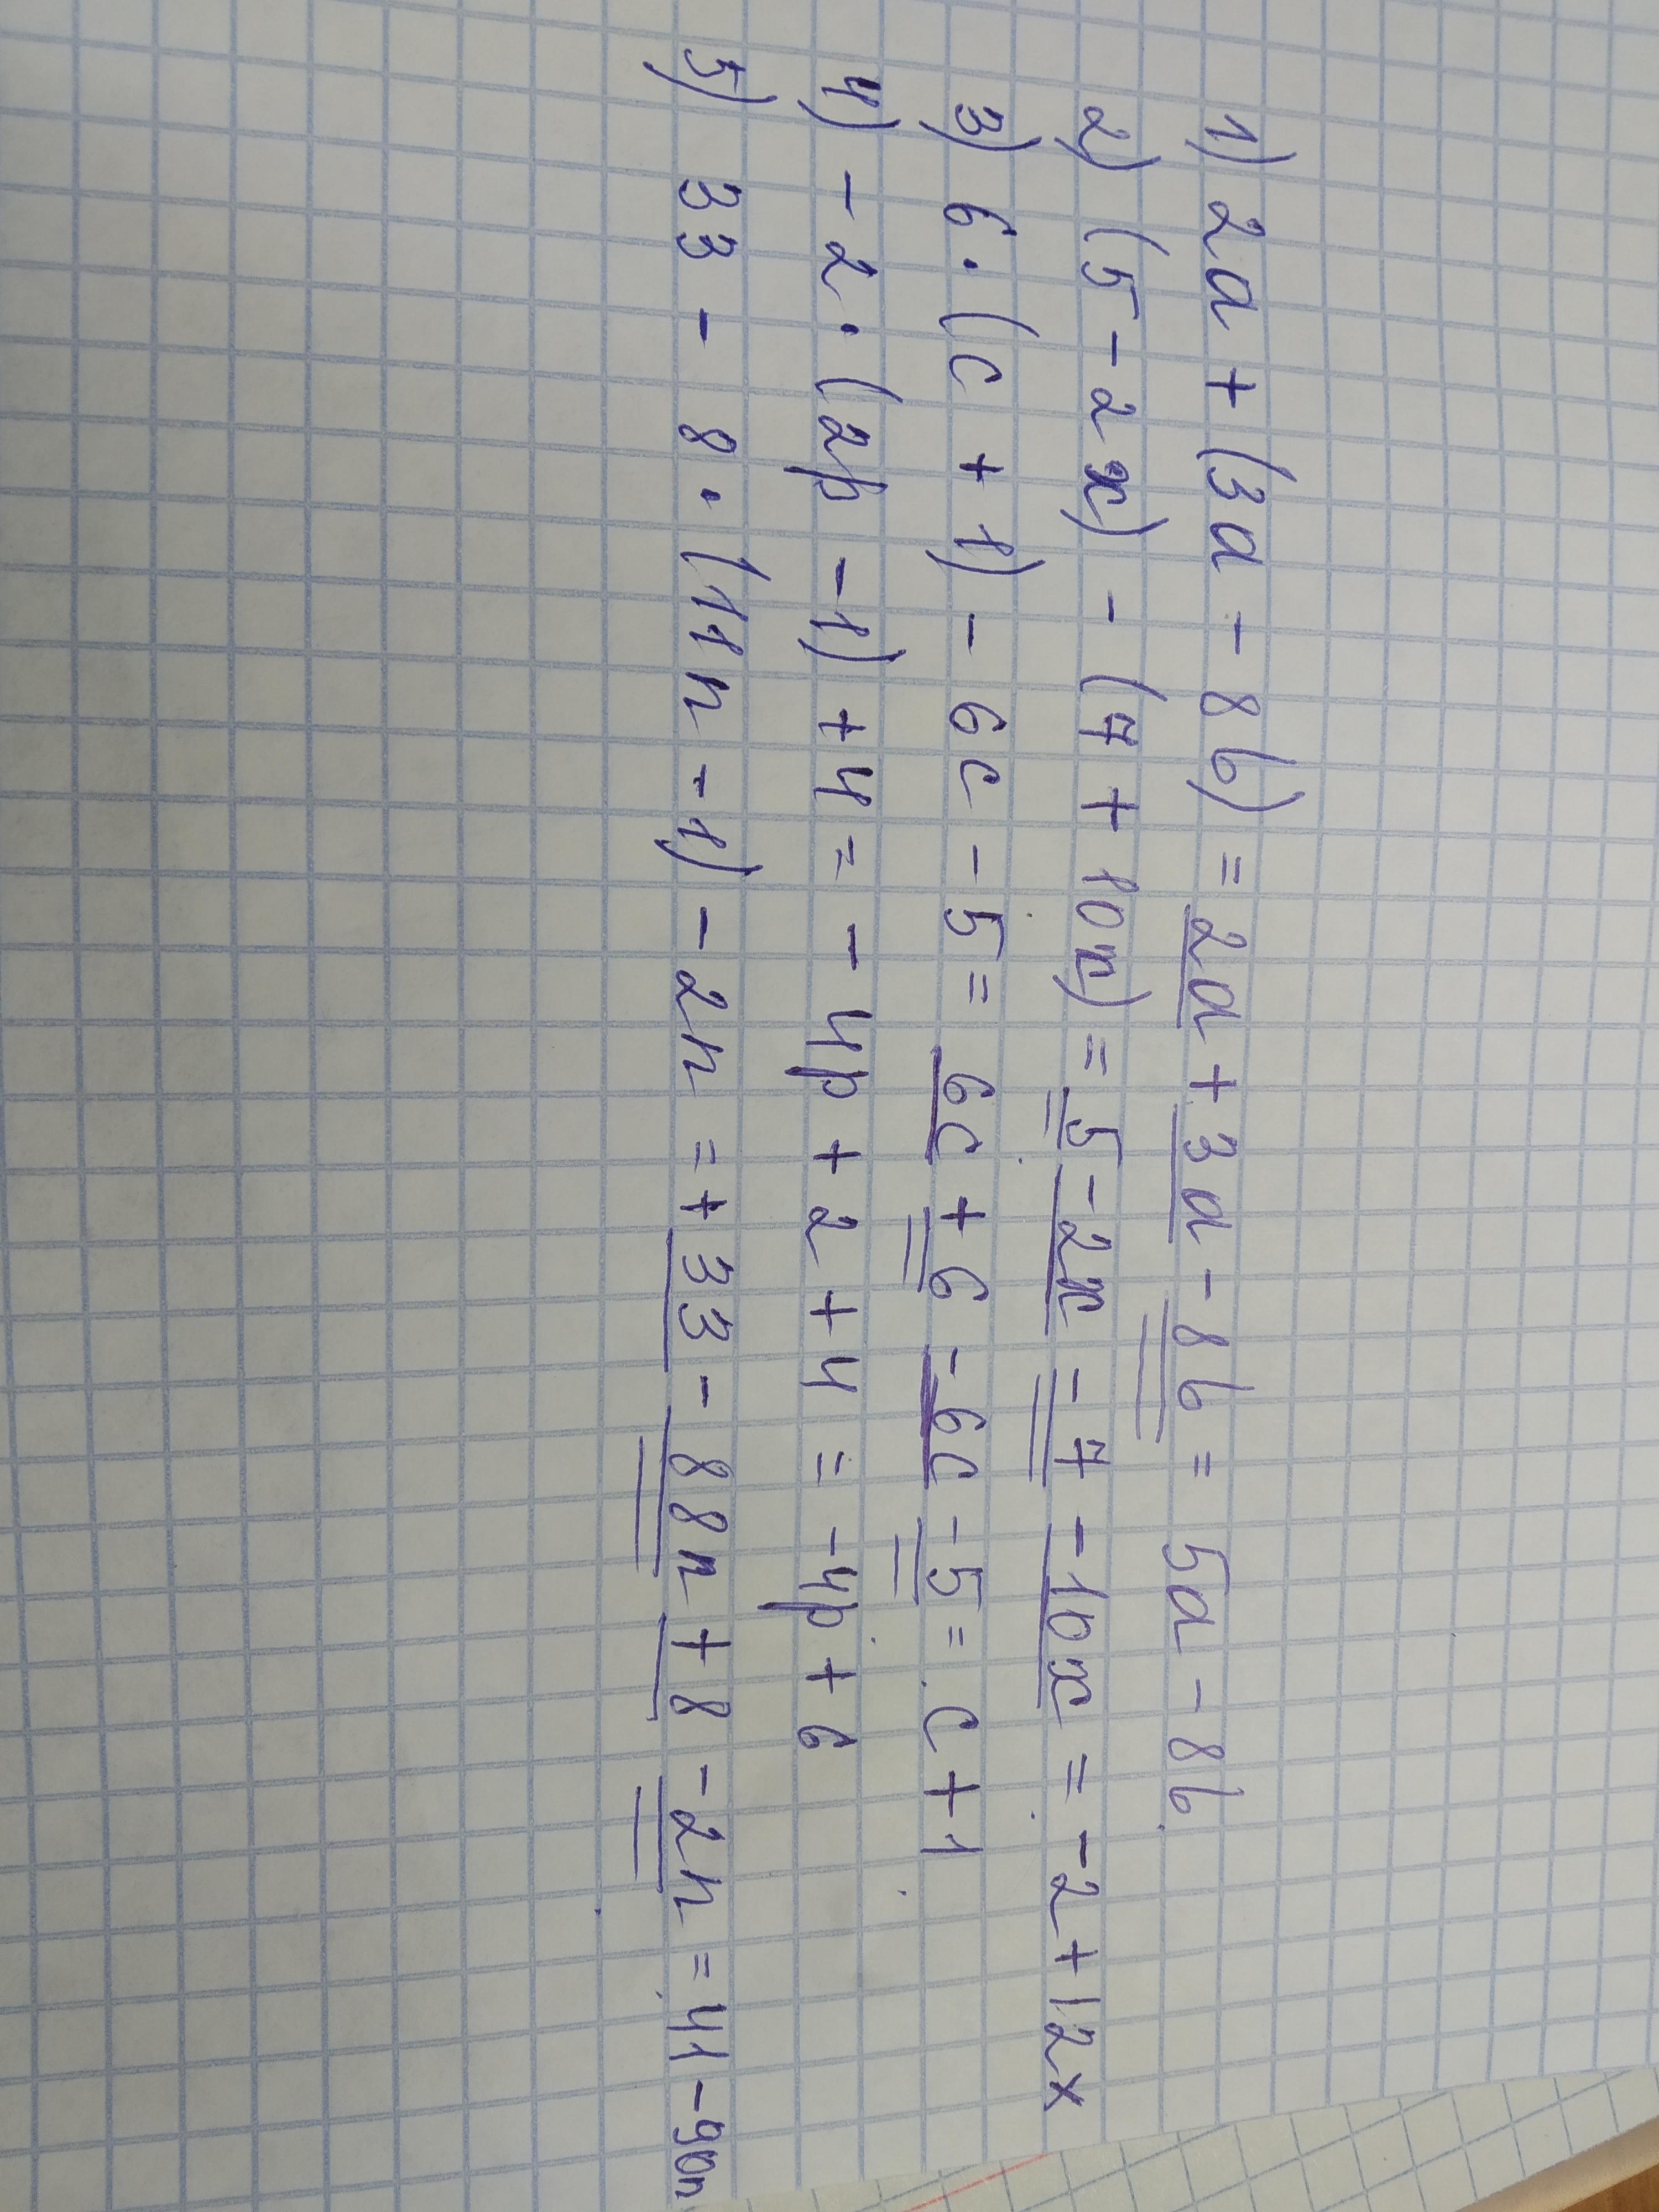 1) 2a + (3a - 8b) = 2a + 3a - 8b = 5a - 8b
2) (5 - 2x) - (7 + 10x) = 5 - 2x - 7 - 10x = -2 + 12x
3) 6 · (c + 1) - 6c - 5 = 6c + 6 - 6c - 5 = c + 1
4) - 2 · (2p - 1) + 4 = - 4p + 2 + 4 = -4p + 6
5) 33 - 8 · (11n - 1) - 2n = + 33 - 88n + 8 - 2n = 41 - 90n